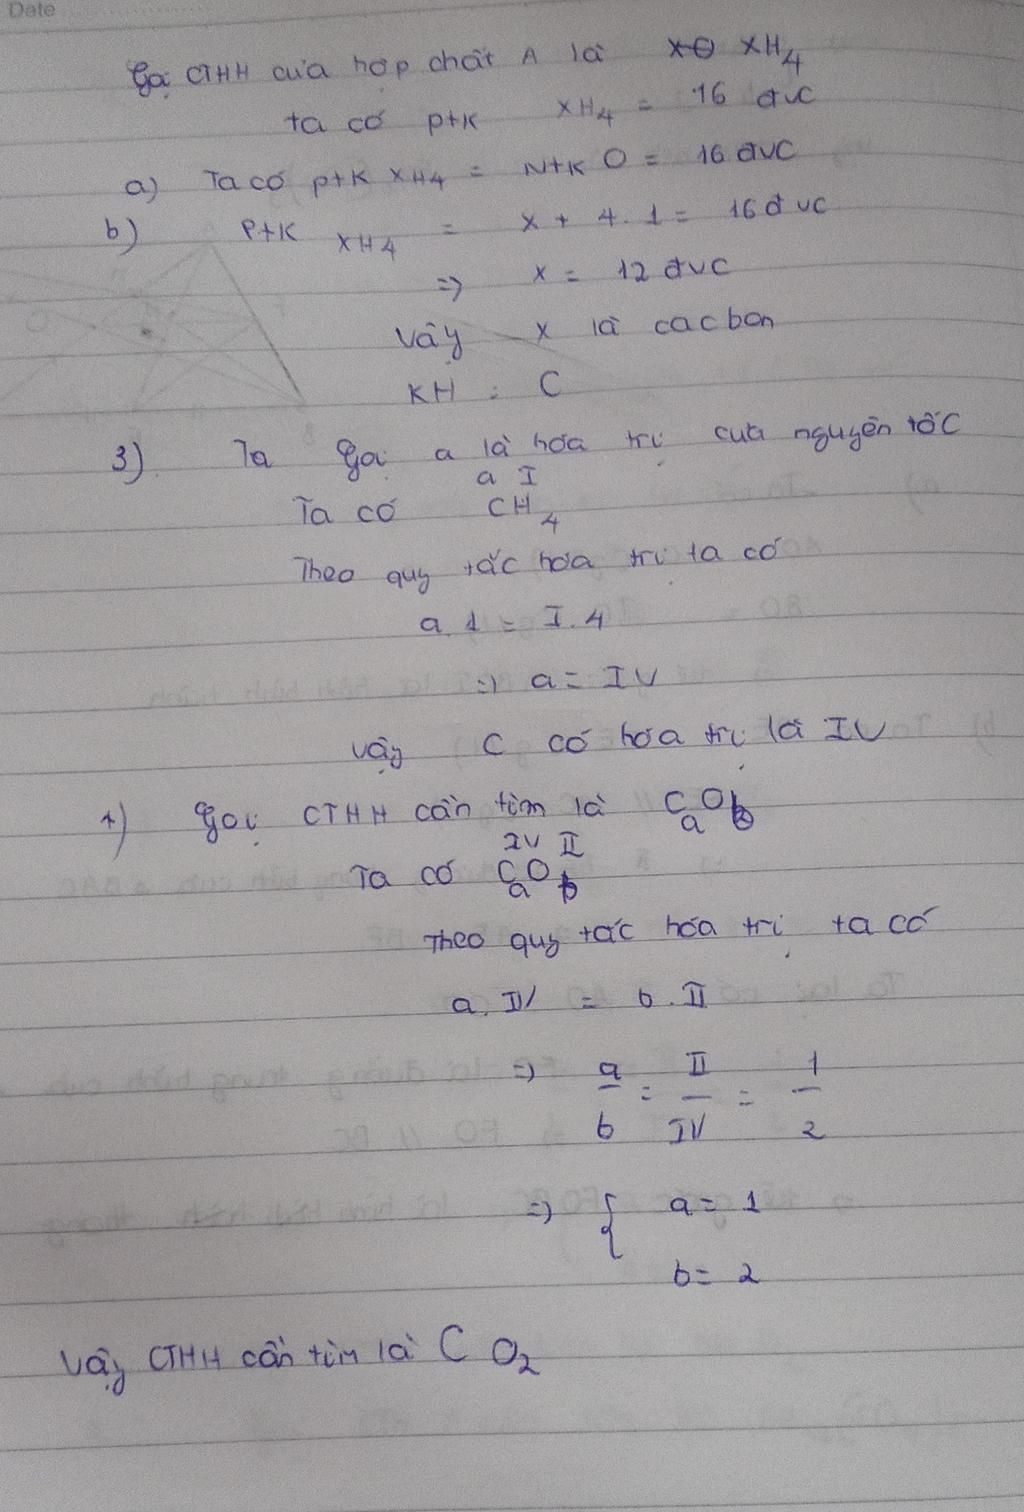 Date
Gọi CTHH của hợp chất A là XH4
ta có PTK XH4 = 16 đvC
a) Ta có PTK XH4 = NTK O = 16 đvC
b) PTK XH4 = X + 4.1 = 16 đvC
=> X = 12 đvC
Vậy X là cacbon
KH : C
3) Ta Gọi a là hóa trị của nguyên tố C
a I
Ta có CH4
Theo quy tắc hóa trị ta có
a.1 = I.4
=> a = IV
Vậy C có hóa trị là IV
Gọi CTHH cần tìm là CaOb
IV II
Ta có CaOb
Theo quy tắc hóa trị ta có
a.IV = b.II
=> a/b = II/IV = 1/2
=> { a = 1
b = 2
Vậy CTHH cần tìm là CO2